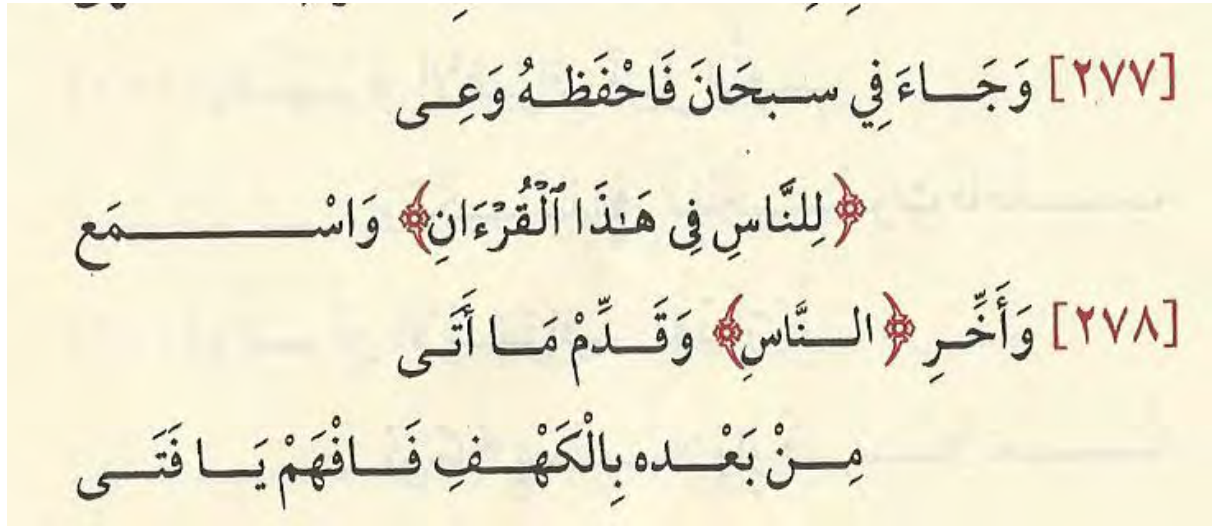 [٢٧٧] وَجَاءَ فِي سبحَانَ فَاحْفَظهُ وَعِى
﴿لِلنَّاسِ فِى هَـٰذَا ٱلْقُرْءَانِ﴾ وَاسْمَع
[٢٧٨] وَأَخِّرِ ﴿النَّاسِ﴾ وَقَدِّمْ مَا أَتَى
مِنْ بَعْده بِالْكَهْفِ فَافْهَمْ يَا فَتَى